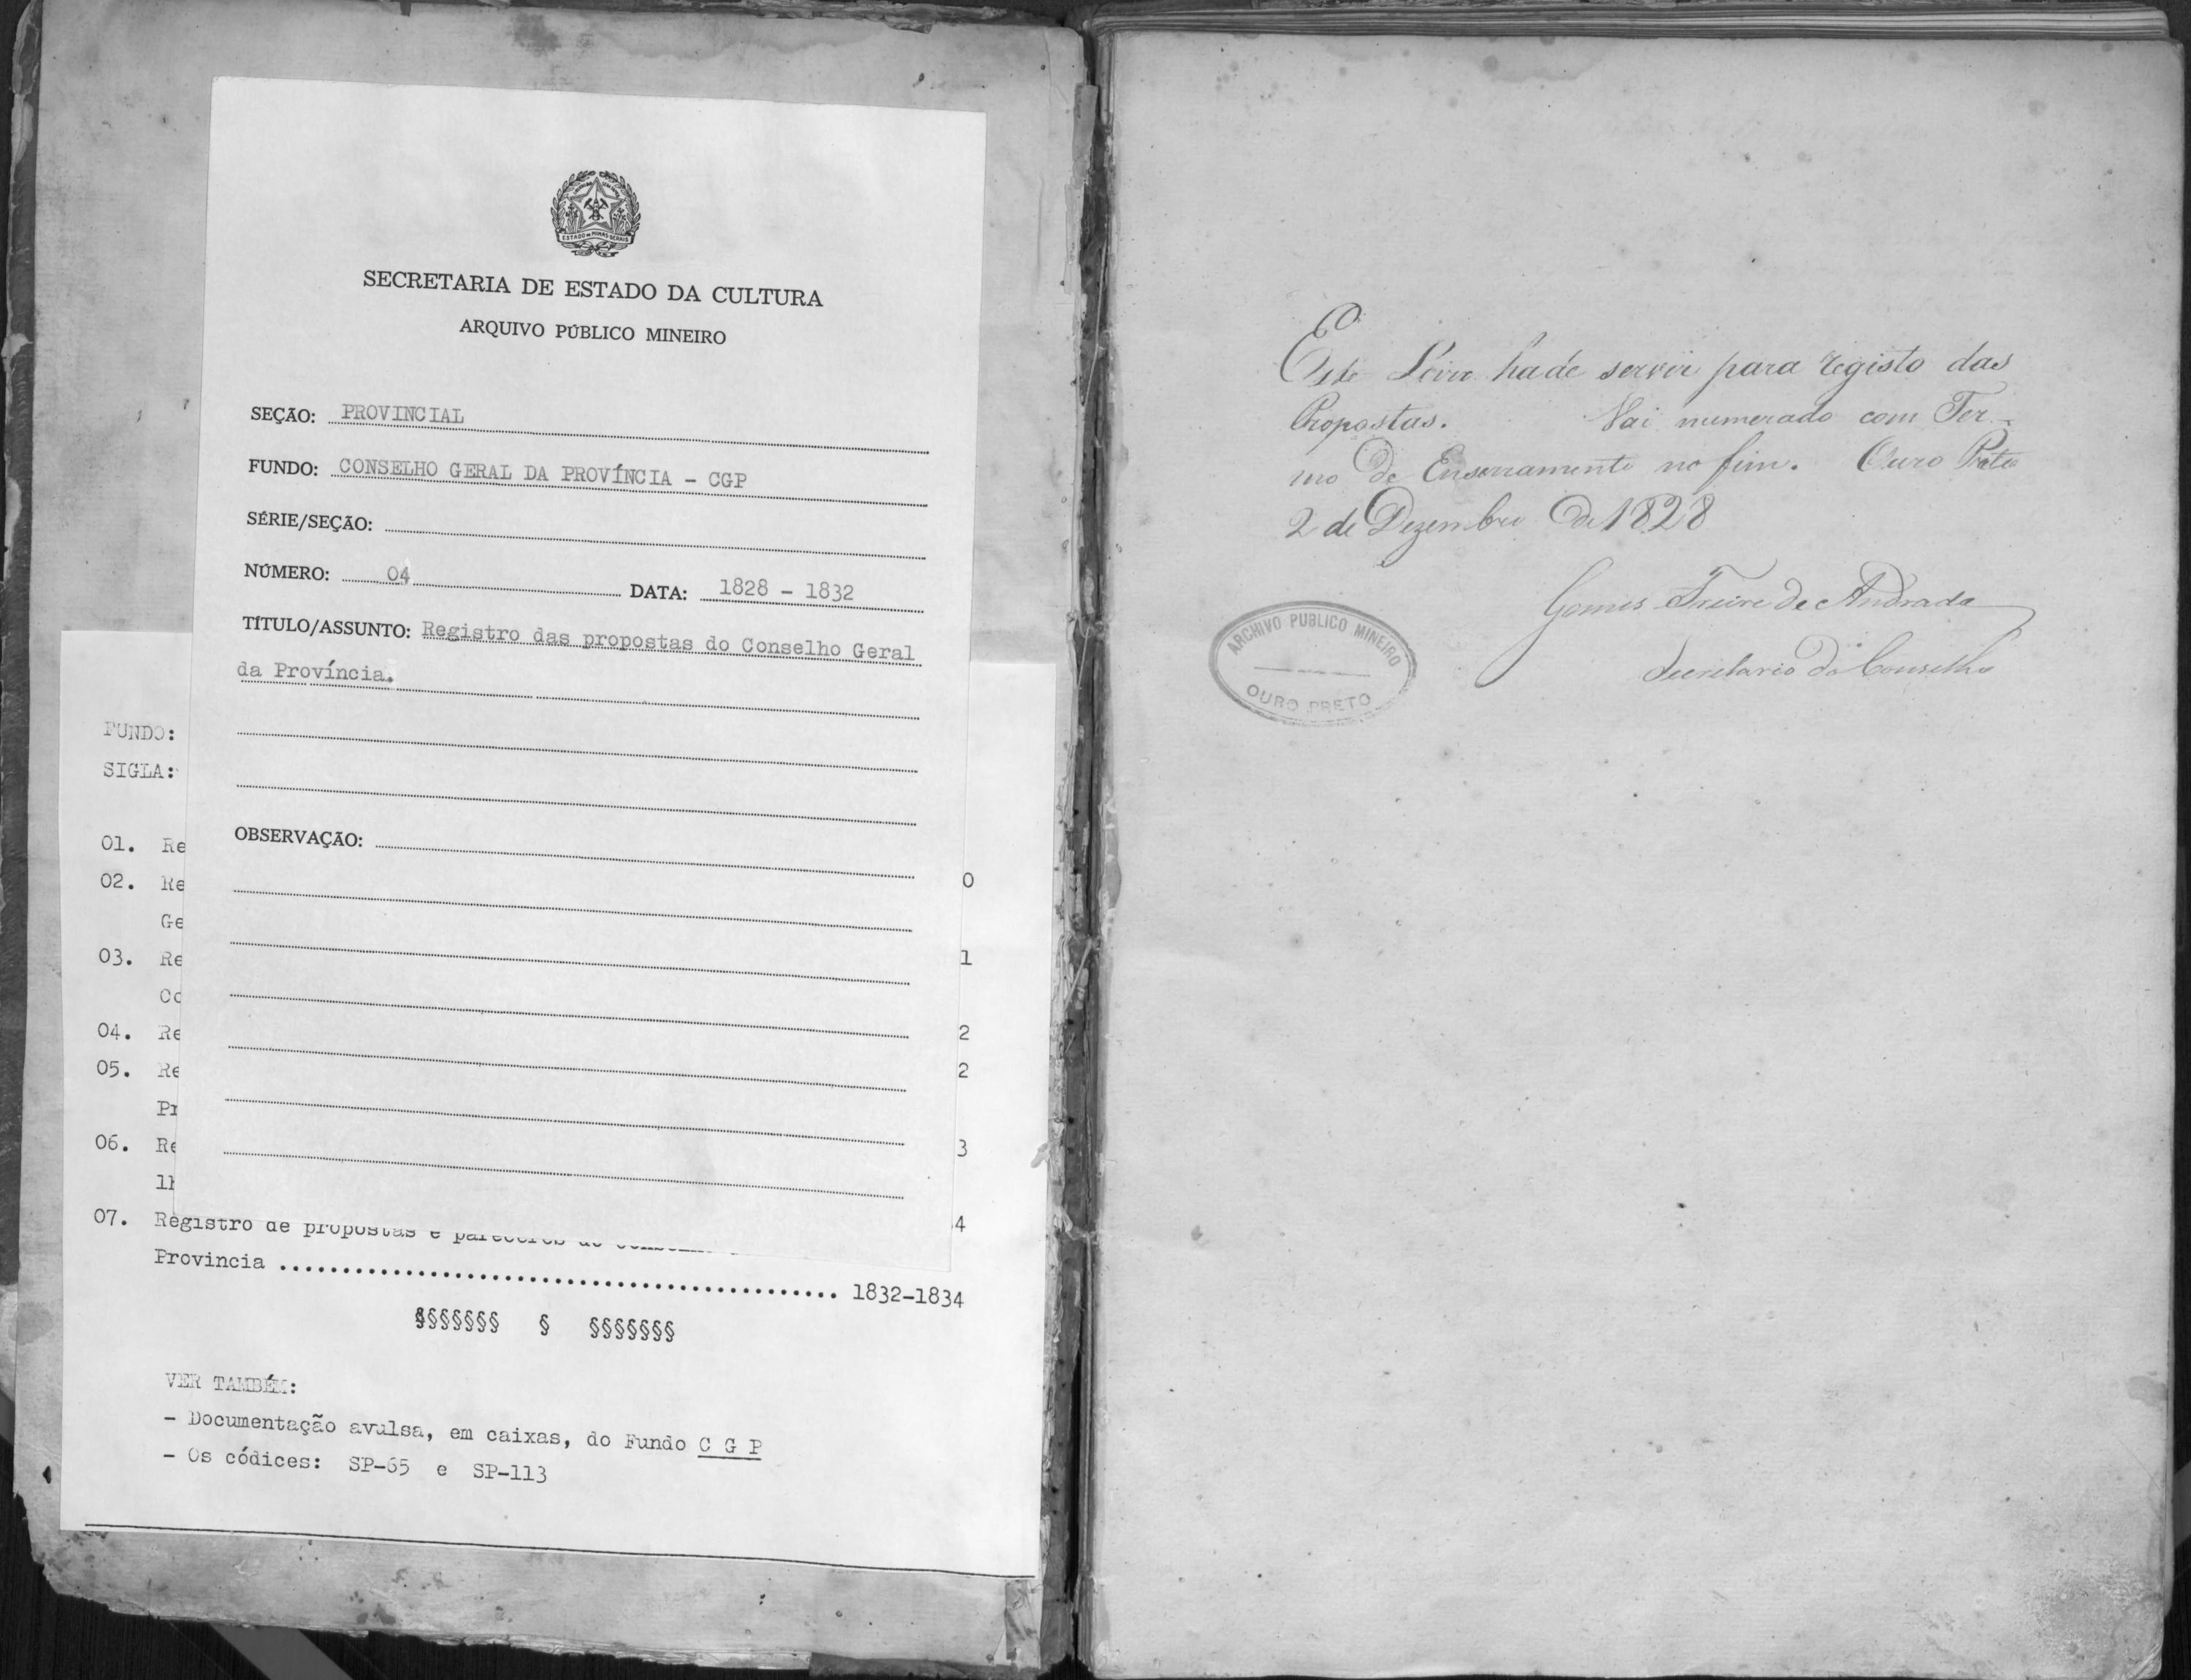 ESTADO DE MINAS GERAIS
SECRETARIA DE ESTADO DA CULTURA
ARQUIVO PÚBLICO MINEIRO
SEÇÃO: PROVINCIAL
FUNDO: CONSELHO GERAL DA PROVÍNCIA - CGP
SÉRIE/SEÇÃO:
NÚMERO: 04 DATA: 1828 - 1832
TÍTULO/ASSUNTO: Registro das propostas do Conselho Geral
da Província.
OBSERVAÇÃO:
FUNDO:
SIGLA:
01. Re
02. Re 0
Ge
03. Re 1
Co
04. Re 2
05. Re 2
Pr
06. Re 3
lh
07. Registro de propostas e pareceres do 4
Provincia ........................................ 1832-1834
§§§§§§§ § §§§§§§§
VER TAMBÉM:
- Documentação avulsa, em caixas, do Fundo C G P
- Os códices: SP-65 e SP-113
Este Livro hade servir para registo das
Propostas. Vai numerado com Ter-
mo de Enserramento no fim. Ouro Preto
2 de Dezembro de 1828
Gomes Freire de Andrada
Secretario do Conselho
ARCHIVO PUBLICO MINEIRO
OURO PRETO